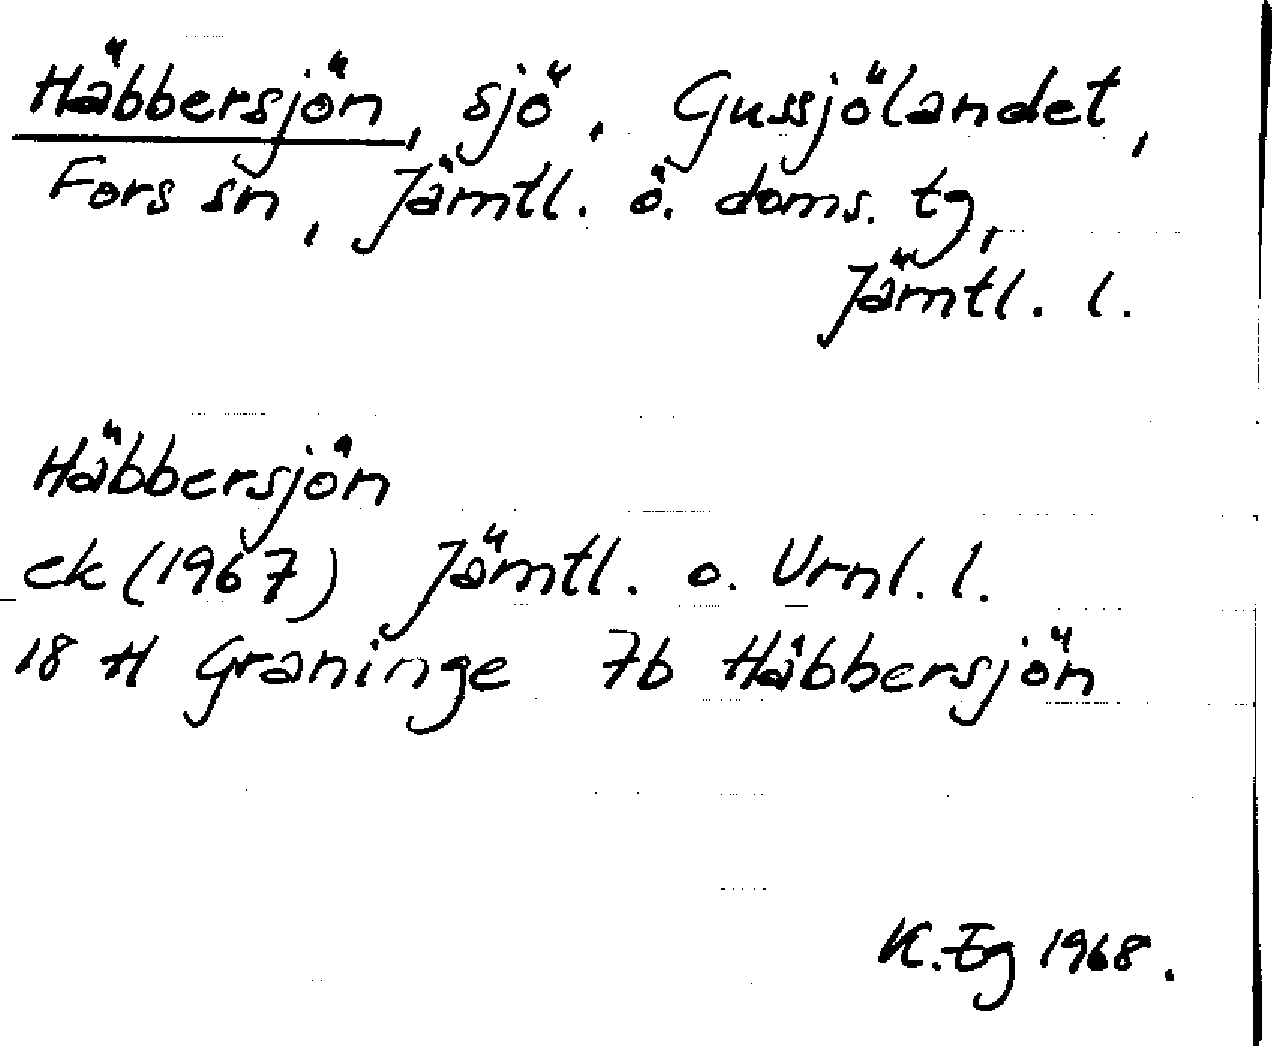 Häbbersjön, sjö, Gussjölandet,
Fors sn, Jämtl. ö. doms. tg,
Jämtl. l.
Häbbersjön
ek (1967) Jämtl. o. Vrnl. l.
18 H Graninge 7b Häbbersjön
K. Eg 1968.